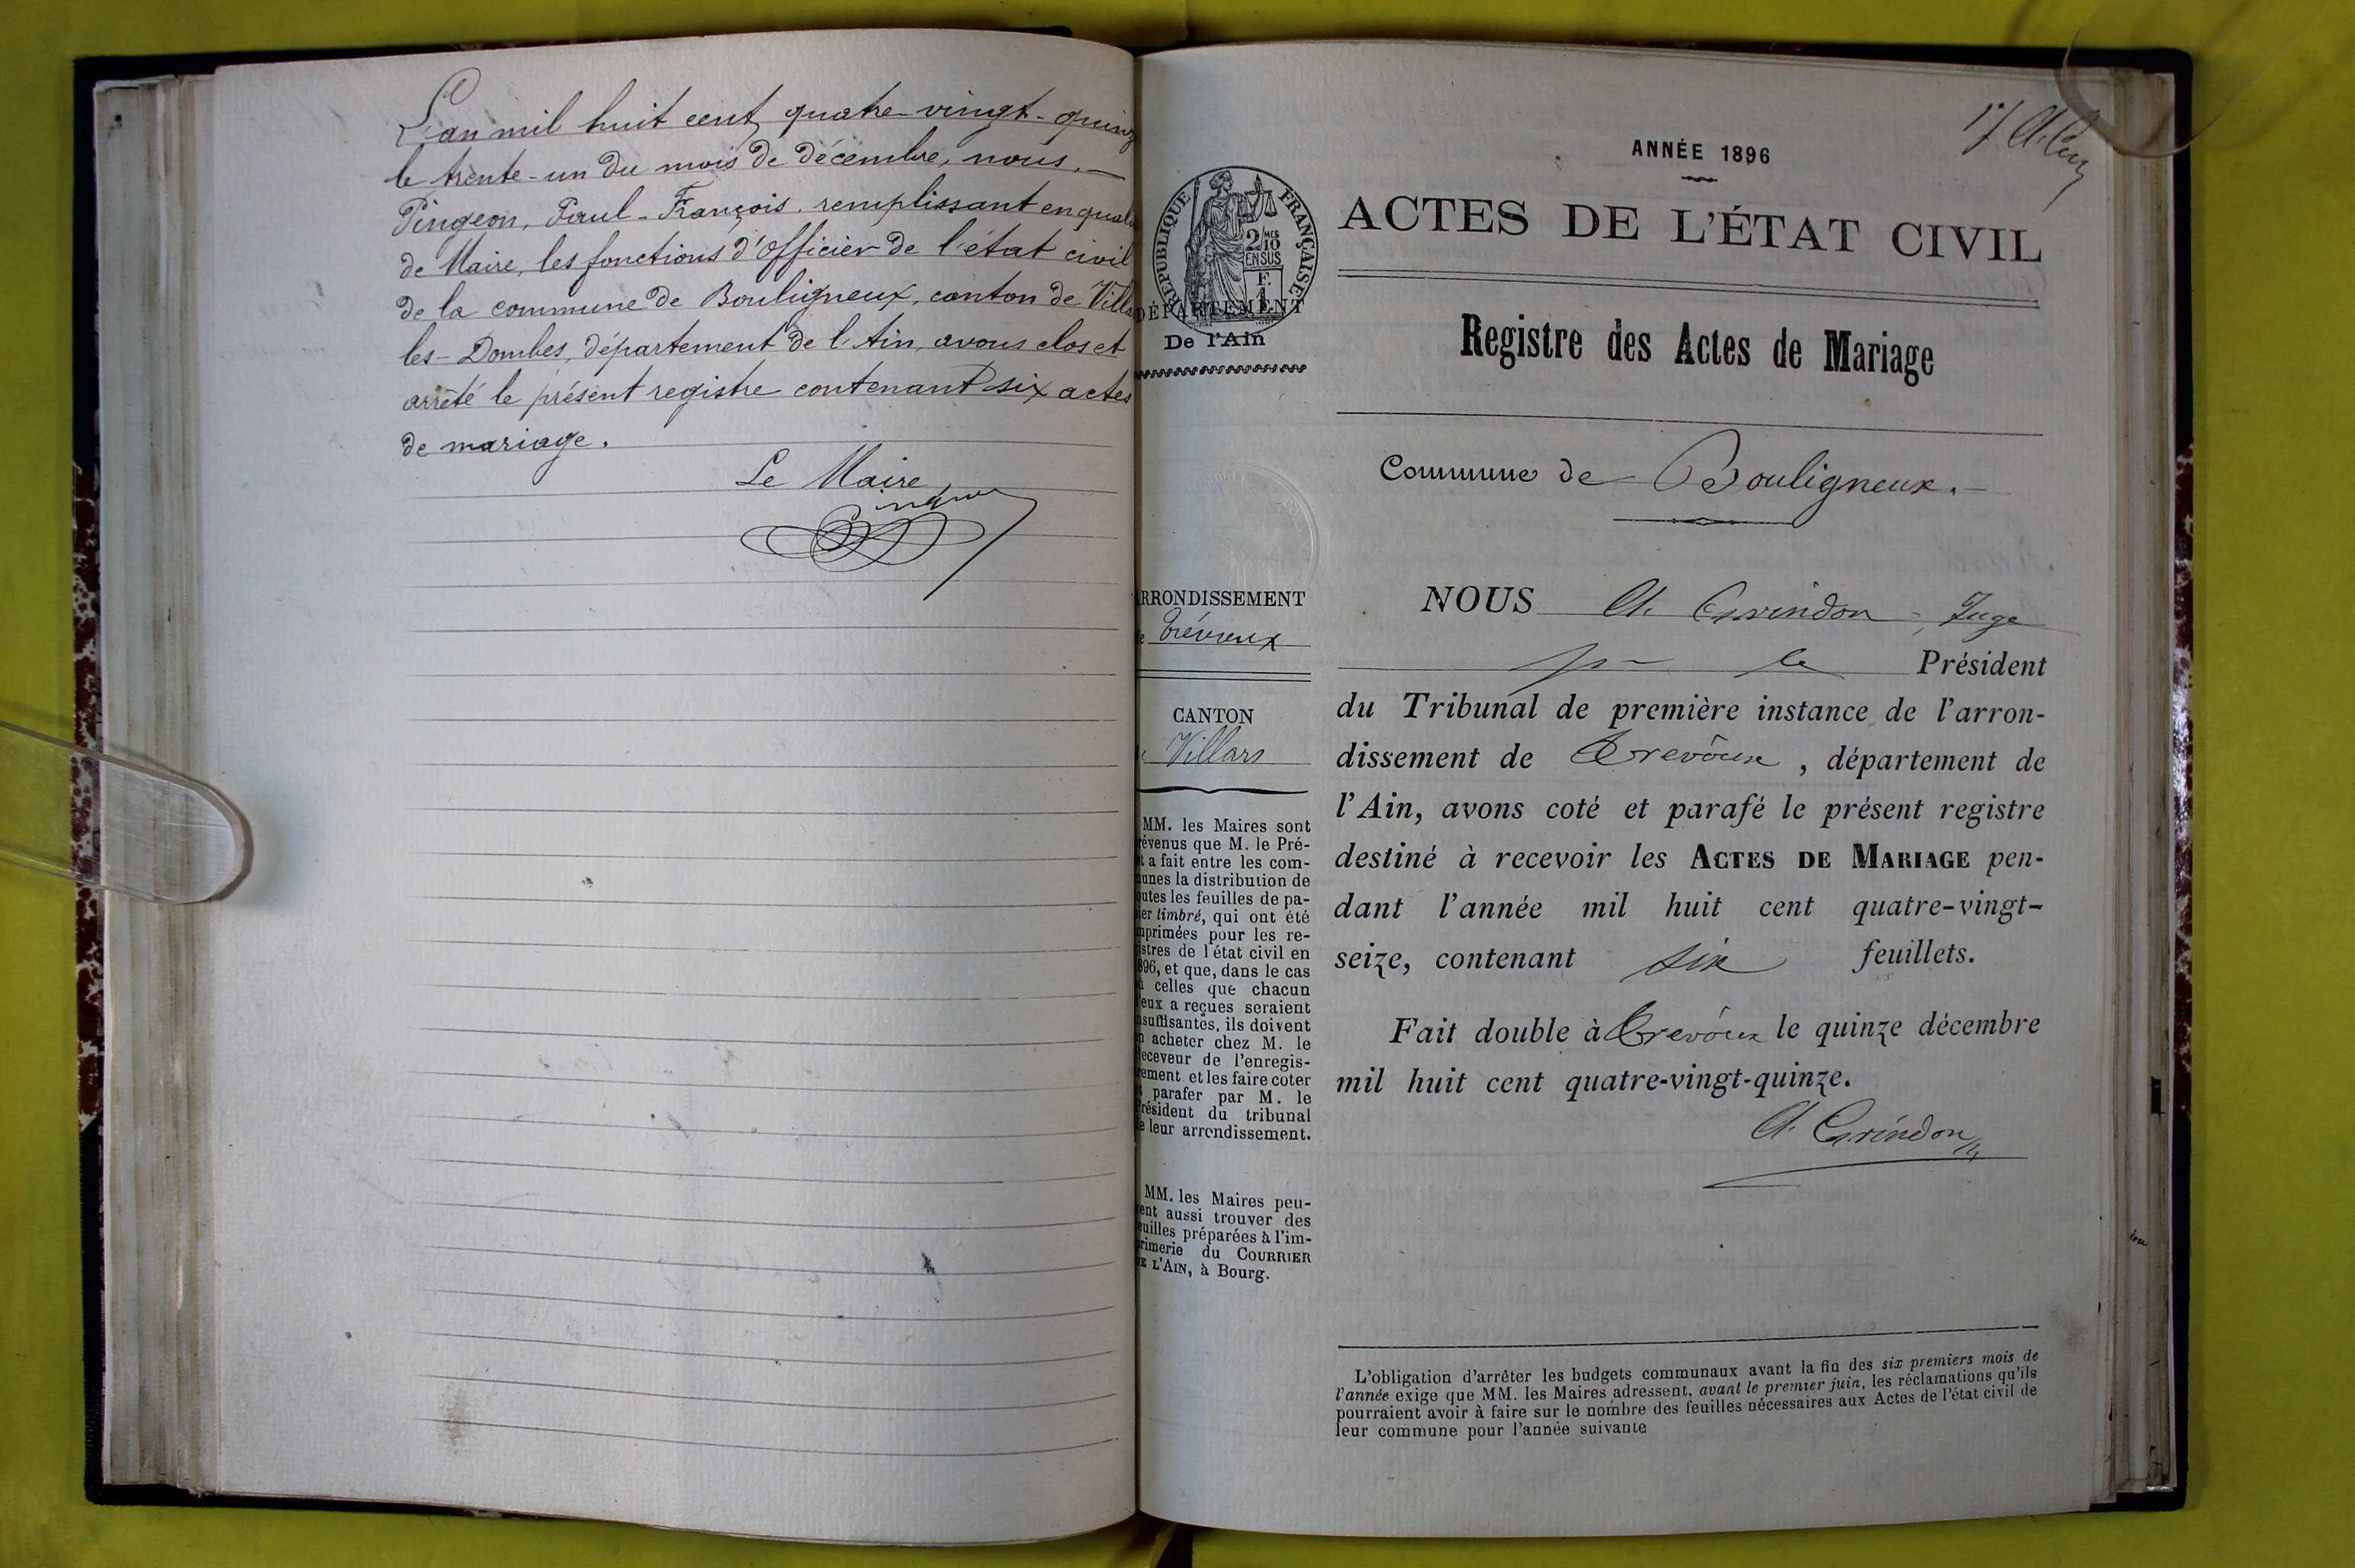 L'an mil huit cent quatre-vingt-quinz
le trente-un du mois de décembre, nous,
Pingeon, Paul-François, remplissant en qual
de Maire, les fonctions d'officier de l'état civil
de la commune de Bouligneux, canton de Villa
les-Dombes, département de l'Ain, avons clos et
arrêté le présent registre contenant six actes
de mariage.
Le Maire
Pingeon
RÉPUBLIQUE FRANÇAISE
2/10
EN SUS
DÉPARTEMENT
De l'Ain
RRONDISSEMENT
Trévoux
CANTON
Villars
MM. les Maires sont
révenus que M. le Pré-
t a fait entre les com-
unes la distribution de
outes les feuilles de pa-
ier timbré, qui ont été
mprimées pour les re-
istres de l'état civil en
896, et que, dans le cas
ù celles que chacun
'eux a reçues seraient
nsuffisantes, ils doivent
n acheter chez M. le
eceveur de l'enregis-
rement et les faire coter
t parafer par M. le
Président du tribunal
e leur arrondissement.
MM. les Maires peu-
vent aussi trouver des
euilles préparées à l'im-
primerie du COURRIER
DE L'AIN, à Bourg.
ANNÉE 1896
ACTES DE L'ÉTAT CIVIL
Registre des Actes de Mariage
Commune de Bouligneux.
NOUS A. Grindon, Juge
pr le Président
du Tribunal de première instance de l'arron-
dissement de Trevoux, département de
l'Ain, avons coté et parafé le présent registre
destiné à recevoir les ACTES DE MARIAGE pen-
dant l'année mil huit cent quatre-vingt-
seize, contenant six feuillets.
Fait double à Trevoux le quinze décembre
mil huit cent quatre-vingt-quinze.
A. Grindon
L'obligation d'arrêter les budgets communaux avant la fin des six premiers mois de
l'année exige que MM. les Maires adressent, avant le premier juin, les réclamations qu'ils
pourraient avoir à faire sur le nombre des feuilles nécessaires aux Actes de l'état civil de
leur commune pour l'année suivante